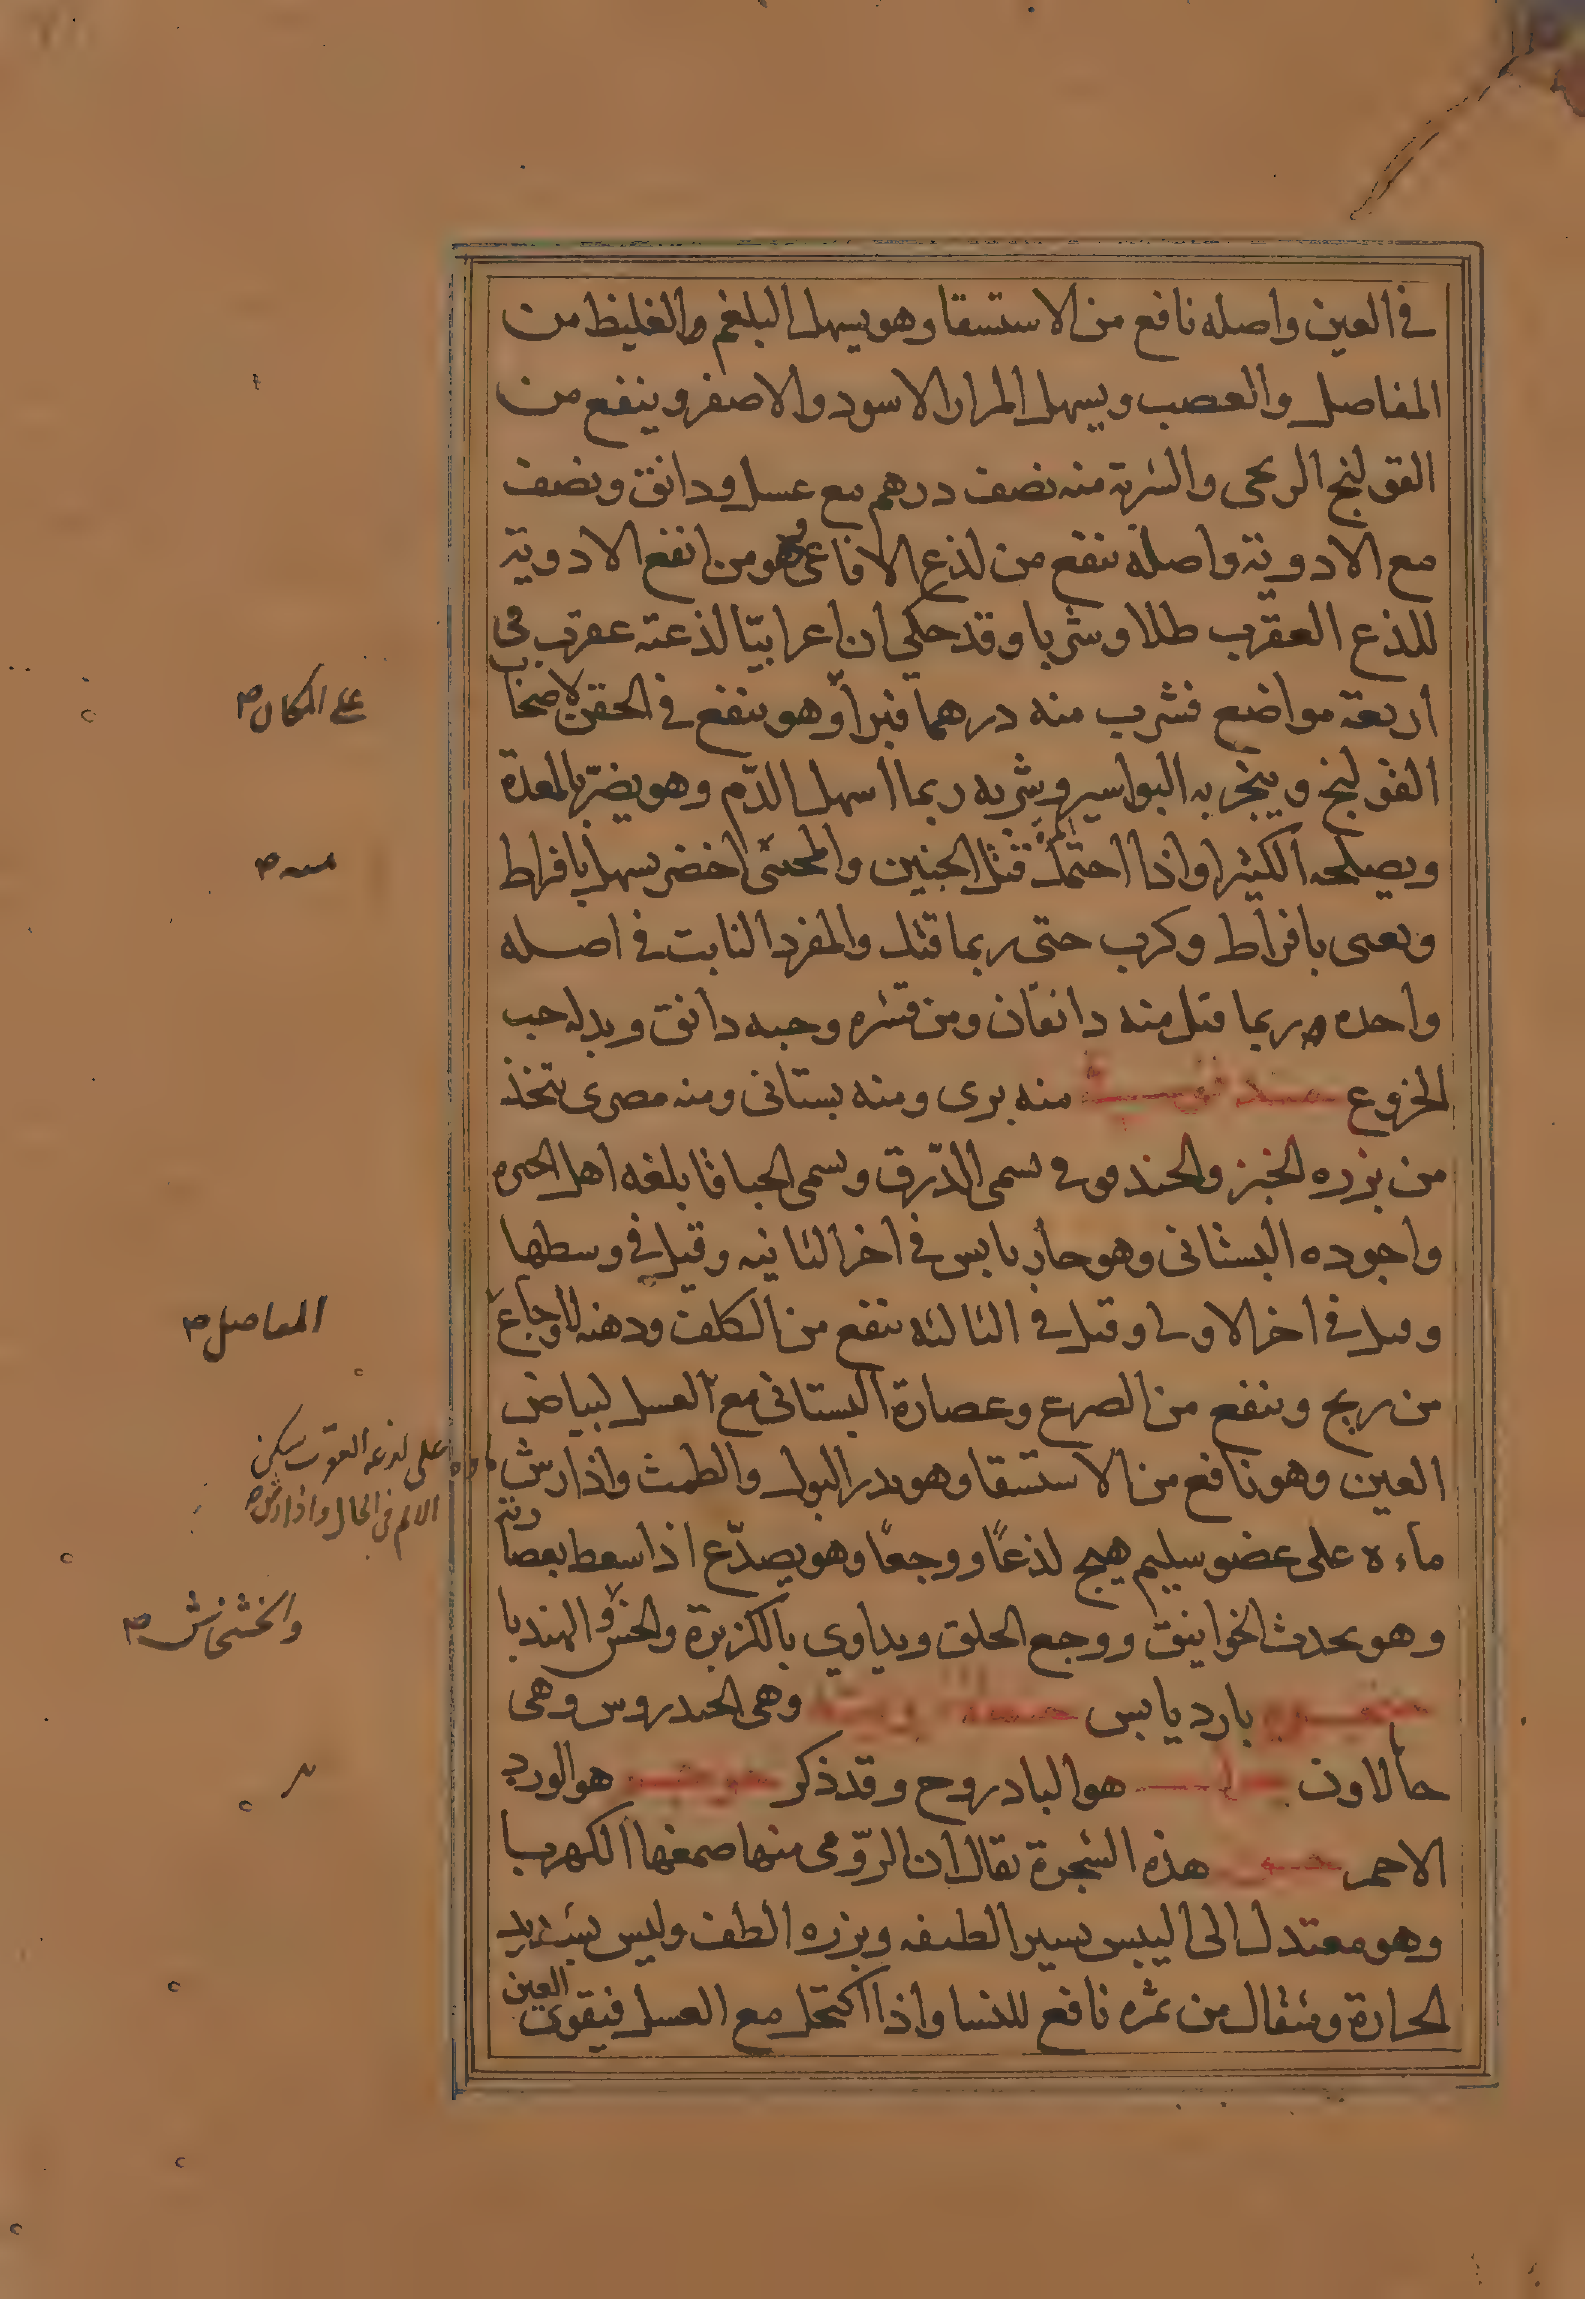 في العين واصله نافع من الاستسقا وهو يسهل البلغم والغليظ من
المفاصل والعصب ويسهل المرار الاسود والاصفر وينفع من
القولنج الريحى والشربة منه نصف درهم مع عسل ودانق ونصف
مع الادوية واصله ينفع من لذع الافاعى وهو من انفع الادوية
للذع العقرب طلا وشربا وقد حكي ان اعرابيّا لذعته عقرب في
اربعة مواضع فشرب منه درهما فبرأ وهو ينفع في الحقن لاصحاب
على المكان
القولنج ويبخر به البواسير وشربه ربما اسهل الدّم وهو يضرّ بالمعدة
ويصلحه الكثيرا واذا احتمل قتل الجنين والمجتنى اخضر يسهل بافراط
منه
وبافراط وكرب حتى ربما قتل والمفرد النابت في اصله
واحده ربما قتل منه دانقان ومن قشره وحبه دانق وبدله حب
الخروع منه برى ومنه بستانى ومنه مصرى يتخذ
من بزره الخبز والحندقوقى يسمى الذّرق وسمى الحباقا بلغه اهل الحيره
واجوده البستانى وهو حار يابس في اخر الثانيه وقيل في وسطها
وقيل في اخر الاولى وقيل في الثالثه ينفع من الكلف ودهنه لاوجاع
المفاصل
من ريح وينفع من الصرع وعصارة البستانى مع العسل لبياض
العين وهو نافع من الاستسقا وهو يدر البول والطمث واذا رش
ماوه على لذعه العقرب سكن
الالم في الحال واذا رش
ماءه على عضو سليم هيج لذعًا ووجعًا وهو يصدّع اذا سعط بعصارته
وهو يحدث الخوانيق ووجع الحلق ويداوي بالكزبرة والخس والهندبا
والخشخاش
بارد يابس وهى الحندروس وهى
حالاون هو البادروح وقد ذكر هو الورد
الاحمر هذه الشجرة يقال ان الرّومى منها صمغها الكهربا
وهو معتدل الى اليبس يسير الطيفه وبزره الطف وليس بشديد
الحرارة ومثقال من ثمره نافع للنسا واذا اكتحل مع العسل فيقوى العين